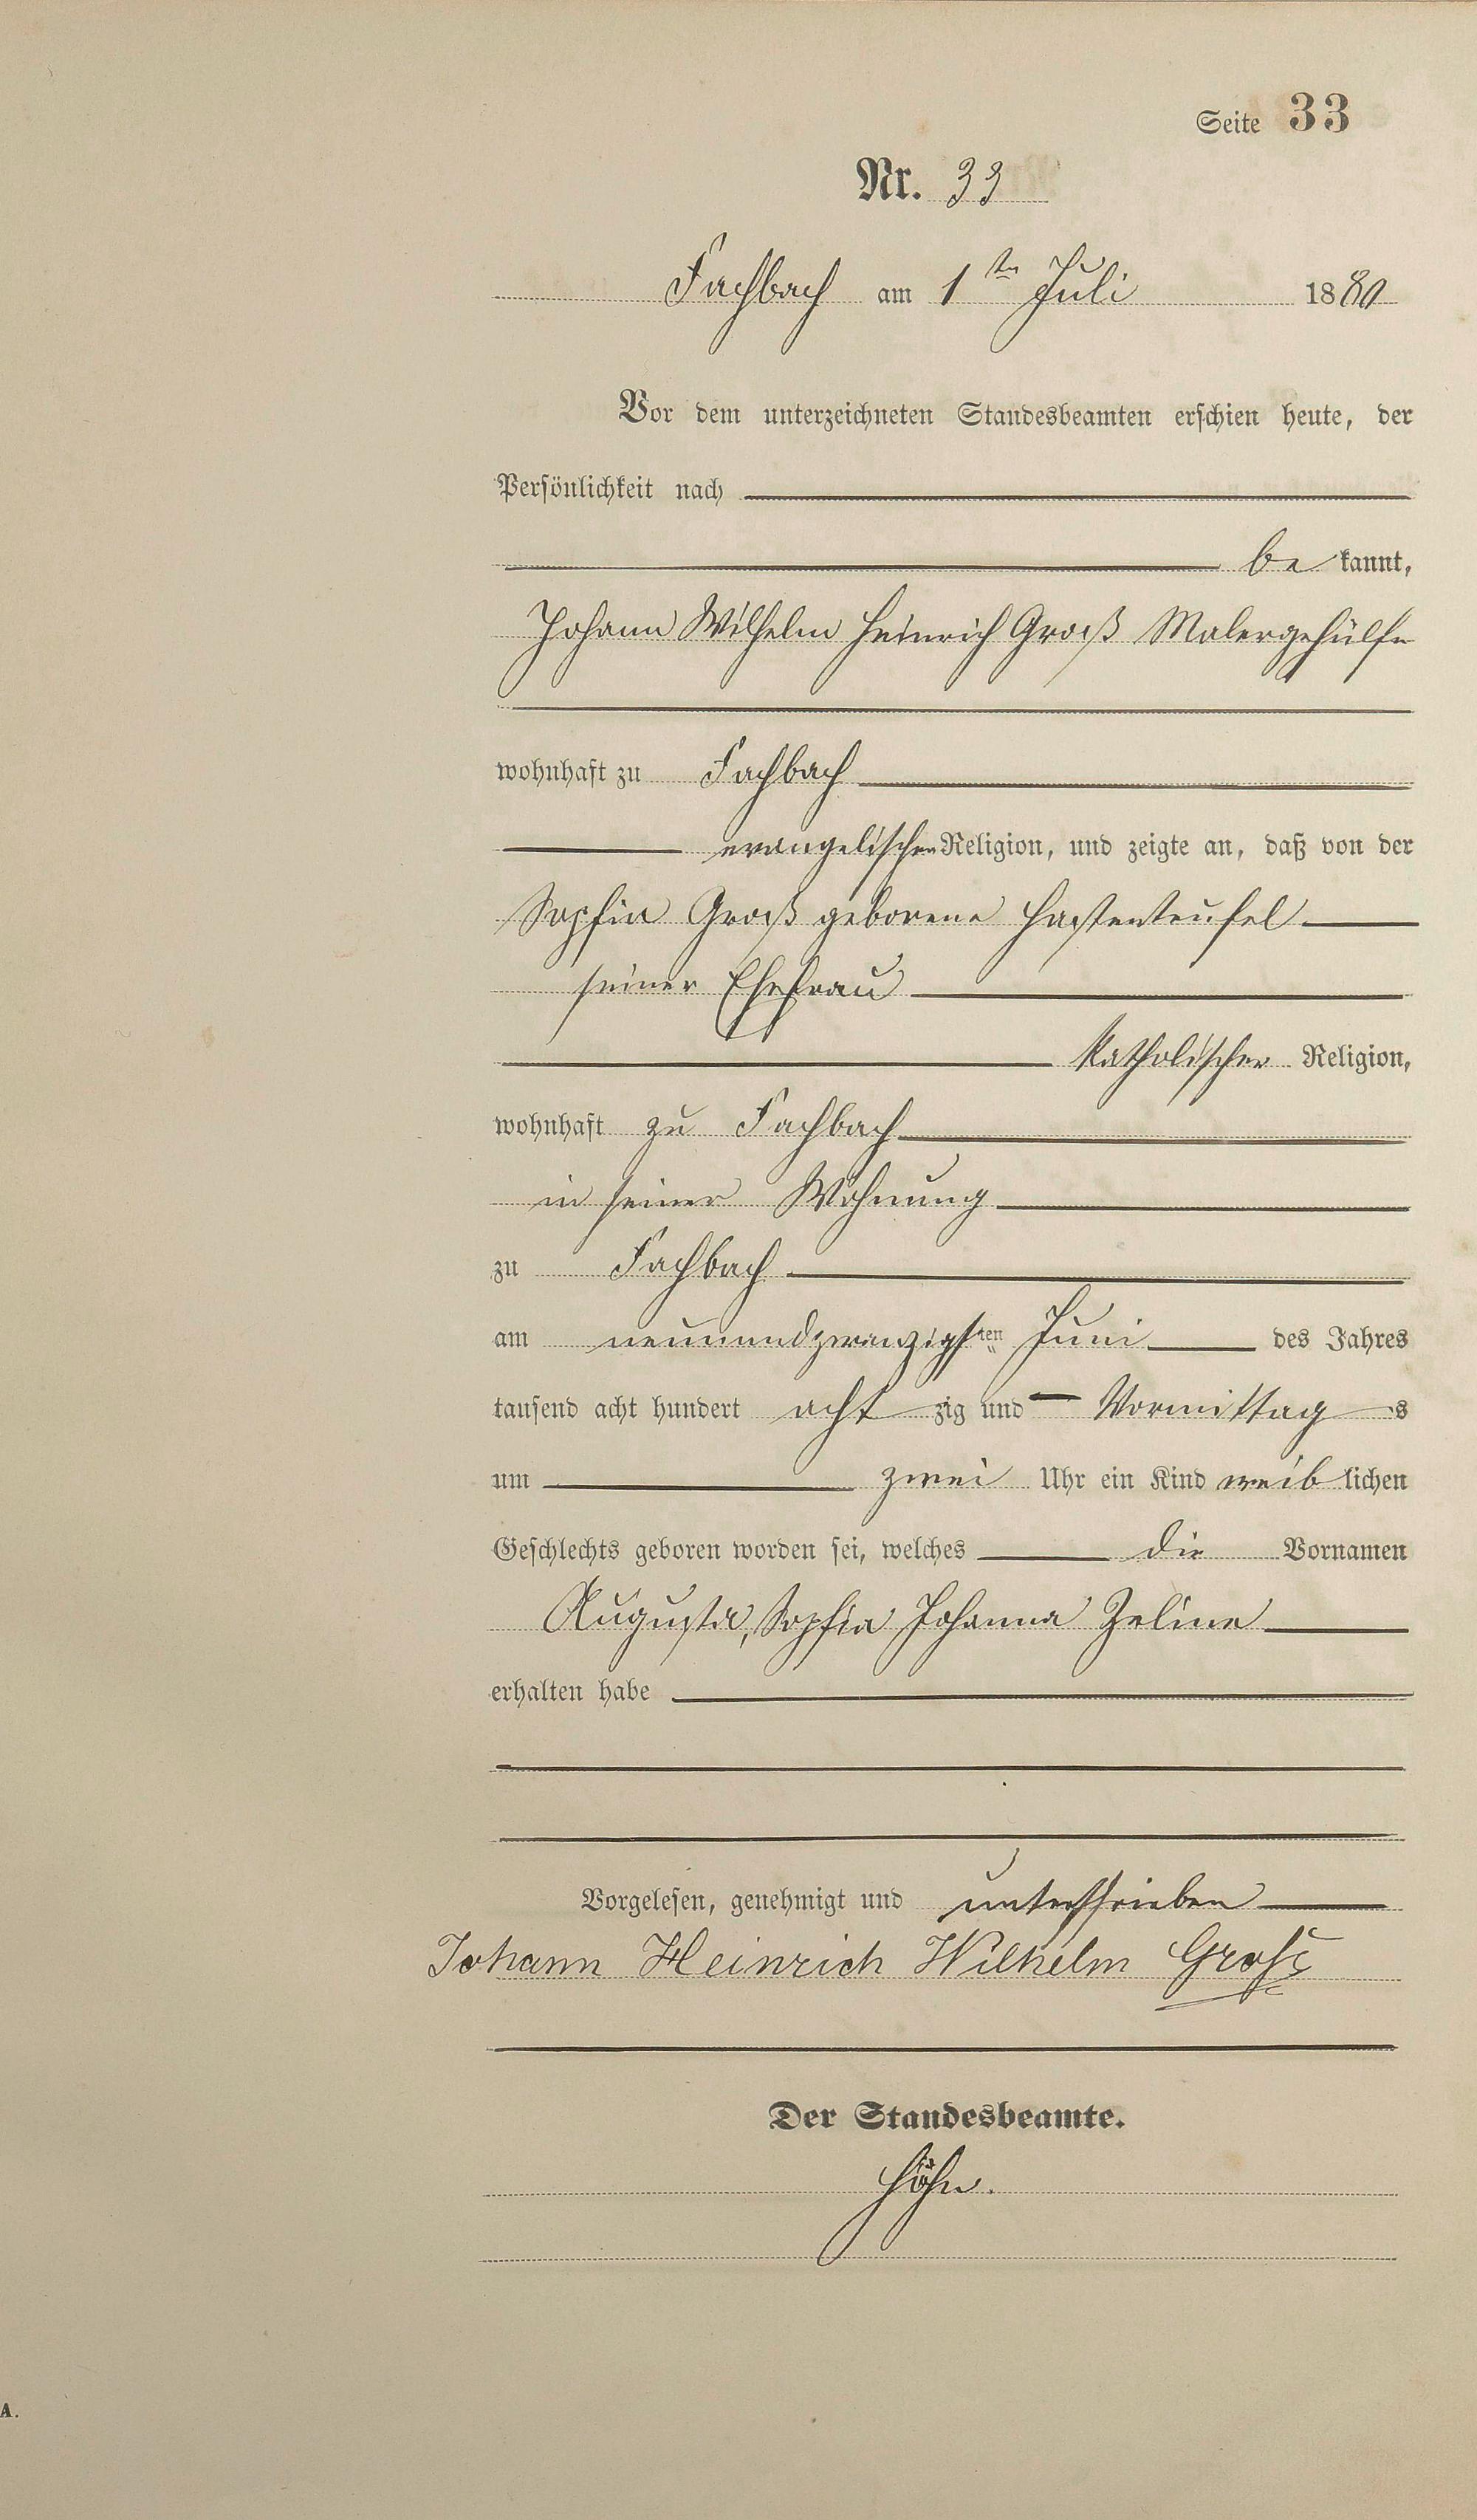 Seite 33
Nr. 33
Fachbach am 1ten Juli 1880
Vor dem unterzeichneten Standesbeamten erschien heute, der
Persönlichkeit nach
be kannt,
Johann Wilhelm Heinrich Groß Malergehülfe
wohnhaft zu Fachbach
evangelischer Religion, und zeigte an, daß von der
Sophia Groß geborene
seiner Ehefrau
katholischer Religion,
wohnhaft zu Fachbach
in seiner Wohnung
zu Fachbach
am neunundzwanzigsten Juni des Jahres
tausend acht hundert acht zig und Vormittag s
um zwei Uhr ein Kind weib lichen
Geschlechts geboren worden sei, welches die Vornamen
Augusta, Sophia Johanna Zeline
erhalten habe
Vorgelesen, genehmigt und unterschrieben
Johann Heinrich Wilhelm Groß
Der Standesbeamte.
Höhn.
A.